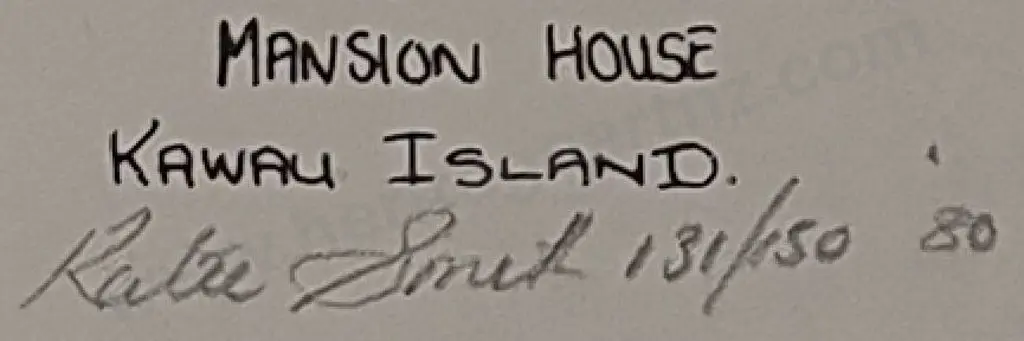 MANSION HOUSE
KAWAU ISLAND.
Katie Smith 131/150 '80